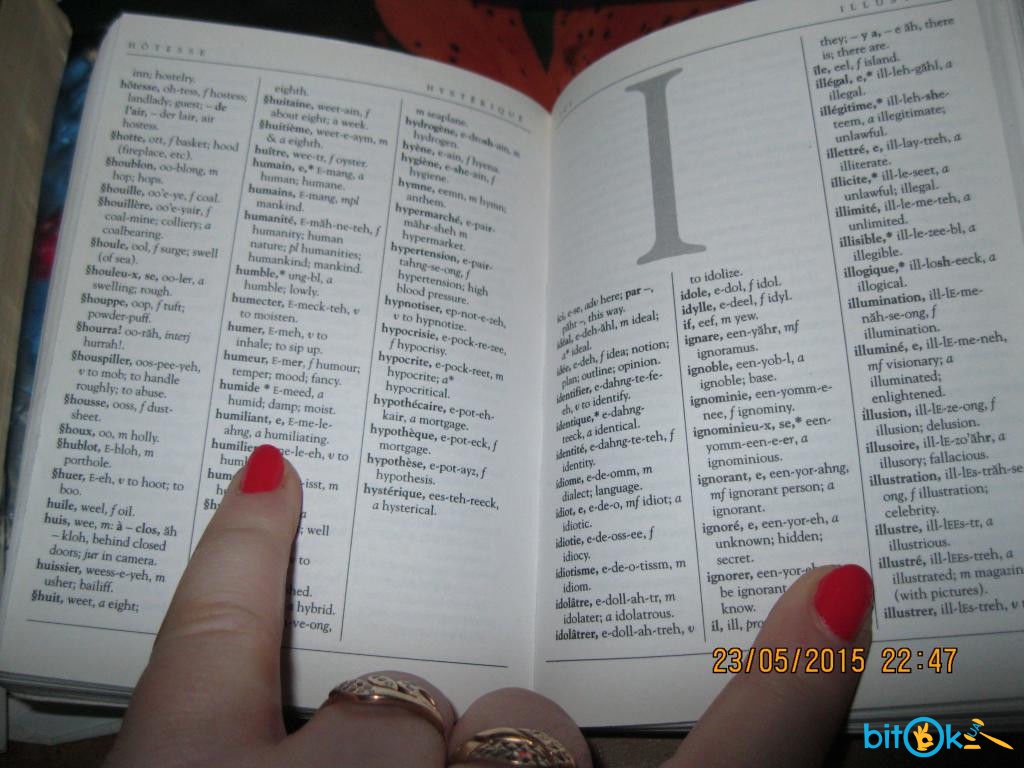 HÔTESSE
inn; hostelry.
hôtesse, oh-tess, f hostess;
landlady; guest; – de
l'air, – der lair, air
hostess.
§hotte, ott, f basket; hood
(fireplace, etc).
§houblon, oo-blong, m
hop; hops.
§houille, oo'e-ye, f coal.
§houillère, oo'e-yair, f
coal-mine; colliery; a
coalbearing.
§houle, ool, f surge; swell
(of sea).
§houleu-x, se, oo-ler, a
swelling; rough.
§houppe, oop, f tuft;
powder-puff.
§hourra! oo-räh, interj
hurrah!.
§houspiller, oos-pee-yeh,
v to mob; to handle
roughly; to abuse.
§housse, ooss, f dust-
sheet.
§houx, oo, m holly.
§hublot, E-bloh, m
porthole.
§huer, E-eh, v to hoot; to
boo.
huile, weel, f oil.
huis, wee, m: à – clos, äh
– kloh, behind closed
doors; jur in camera.
huissier, weess-e-yeh, m
usher; bailiff.
§huit, weet, a eight;
eighth.
§huitaine, weet-ain, f
about eight; a week.
§huitième, weet-e-aym, m
& a eighth.
huître, wee-tr, f oyster.
humain, e,* E-mang, a
human; humane.
humains, E-mang, mpl
mankind.
humanité, E-mäh-ne-teh, f
humanity; human
nature; pl humanities;
humankind; mankind.
humble,* ung-bl, a
humble; lowly.
humecter, E-meck-teh, v
to moisten.
humer, E-meh, v to
inhale; to sip up.
humeur, E-mer, f humour;
temper; mood; fancy.
humide * E-meed, a
humid; damp; moist.
humiliant, e, E-me-le-
ahng, a humiliating.
me-le-eh, v to
-isst, m
well
to
hybrid.
HYSTÉRIQUE
m seaplane.
hydrogène, e-drosh-ain, m
hydrogen.
hyène, e-ain, f hyena.
hygiène, e-she-ain, f
hygiene.
hymne, eemn, m hymn;
anthem.
hypermarché, e-pair-
mähr-sheh m
hypermarket.
hypertension, e-pair-
tahng-se-ong, f
hypertension; high
blood pressure.
hypnotiser, ep-not-e-zeh,
v to hypnotize.
hypocrisie, e-pock-re-zee,
f hypocrisy.
hypocrite, e-pock-reet, m
hypocrite; a*
hypocritical.
hypothécaire, e-pot-eh-
kair, a mortgage.
hypothèque, e-pot-eck, f
mortgage.
hypothèse, e-pot-ayz, f
hypothesis.
hystérique, ees-teh-reeck,
a hysterical.
I
ici, e-se, adv here; par –,
pähr –, this way.
idéal, e-deh-ähl, m ideal;
a* ideal.
idée, e-deh, f idea; notion;
plan; outline; opinion.
identifier, e-dahng-te-fe-
eh, v to identify.
identique,* e-dahng-
teeck, a identical.
identité, e-dahng-te-teh, f
identity.
idiome, e-de-omm, m
dialect; language.
idiot, e, e-de-o, mf idiot; a
idiotic.
idiotie, e-de-oss-ee, f
idiocy.
idiotisme, e-de-o-tissm, m
idiom.
idolâtre, e-doll-ah-tr, m
idolater; a idolatrous.
idolâtrer, e-doll-ah-treh, v
to idolize.
idole, e-dol, f idol.
idylle, e-deel, f idyl.
if, eef, m yew.
ignare, een-yähr, mf
ignoramus.
ignoble, een-yob-l, a
ignoble; base.
ignominie, een-yomm-e-
nee, f ignominy.
ignominieu-x, se,* een-
yomm-een-e-er, a
ignominious.
ignorant, e, een-yor-ahng,
mf ignorant person; a
ignorant.
ignoré, e, een-yor-eh, a
unknown; hidden;
secret.
ignorer, een-yor-eh
be ignorant
know.
il, ill, pro
they; – y a, – e äh, there
is; there are.
île, eel, f island.
illégal, e,* ill-leh-gähl, a
illegal.
illégitime,* ill-leh-she-
teem, a illegitimate;
unlawful.
illettré, e, ill-lay-treh, a
illiterate.
illicite,* ill-le-seet, a
unlawful; illegal.
illimité, ill-le-me-teh, a
unlimited.
illisible,* ill-le-zee-bl, a
illegible.
illogique,* ill-losh-eeck, a
illogical.
illumination, ill-lE-me-
näh-se-ong, f
illumination.
illuminé, e, ill-lE-me-neh,
mf visionary; a
illuminated;
enlightened.
illusion, ill-lE-ze-ong, f
illusion; delusion.
illusoire, ill-lE-zo'ähr, a
illusory; fallacious.
illustration, ill-lEs-träh-se-
ong, f illustration;
celebrity.
illustre, ill-lEEs-tr, a
illustrious.
illustré, ill-lEEs-treh, a
illustrated; m magazin
(with pictures).
illustrer, ill-lEs-treh, v
23/05/2015 22:47
bitok.ua